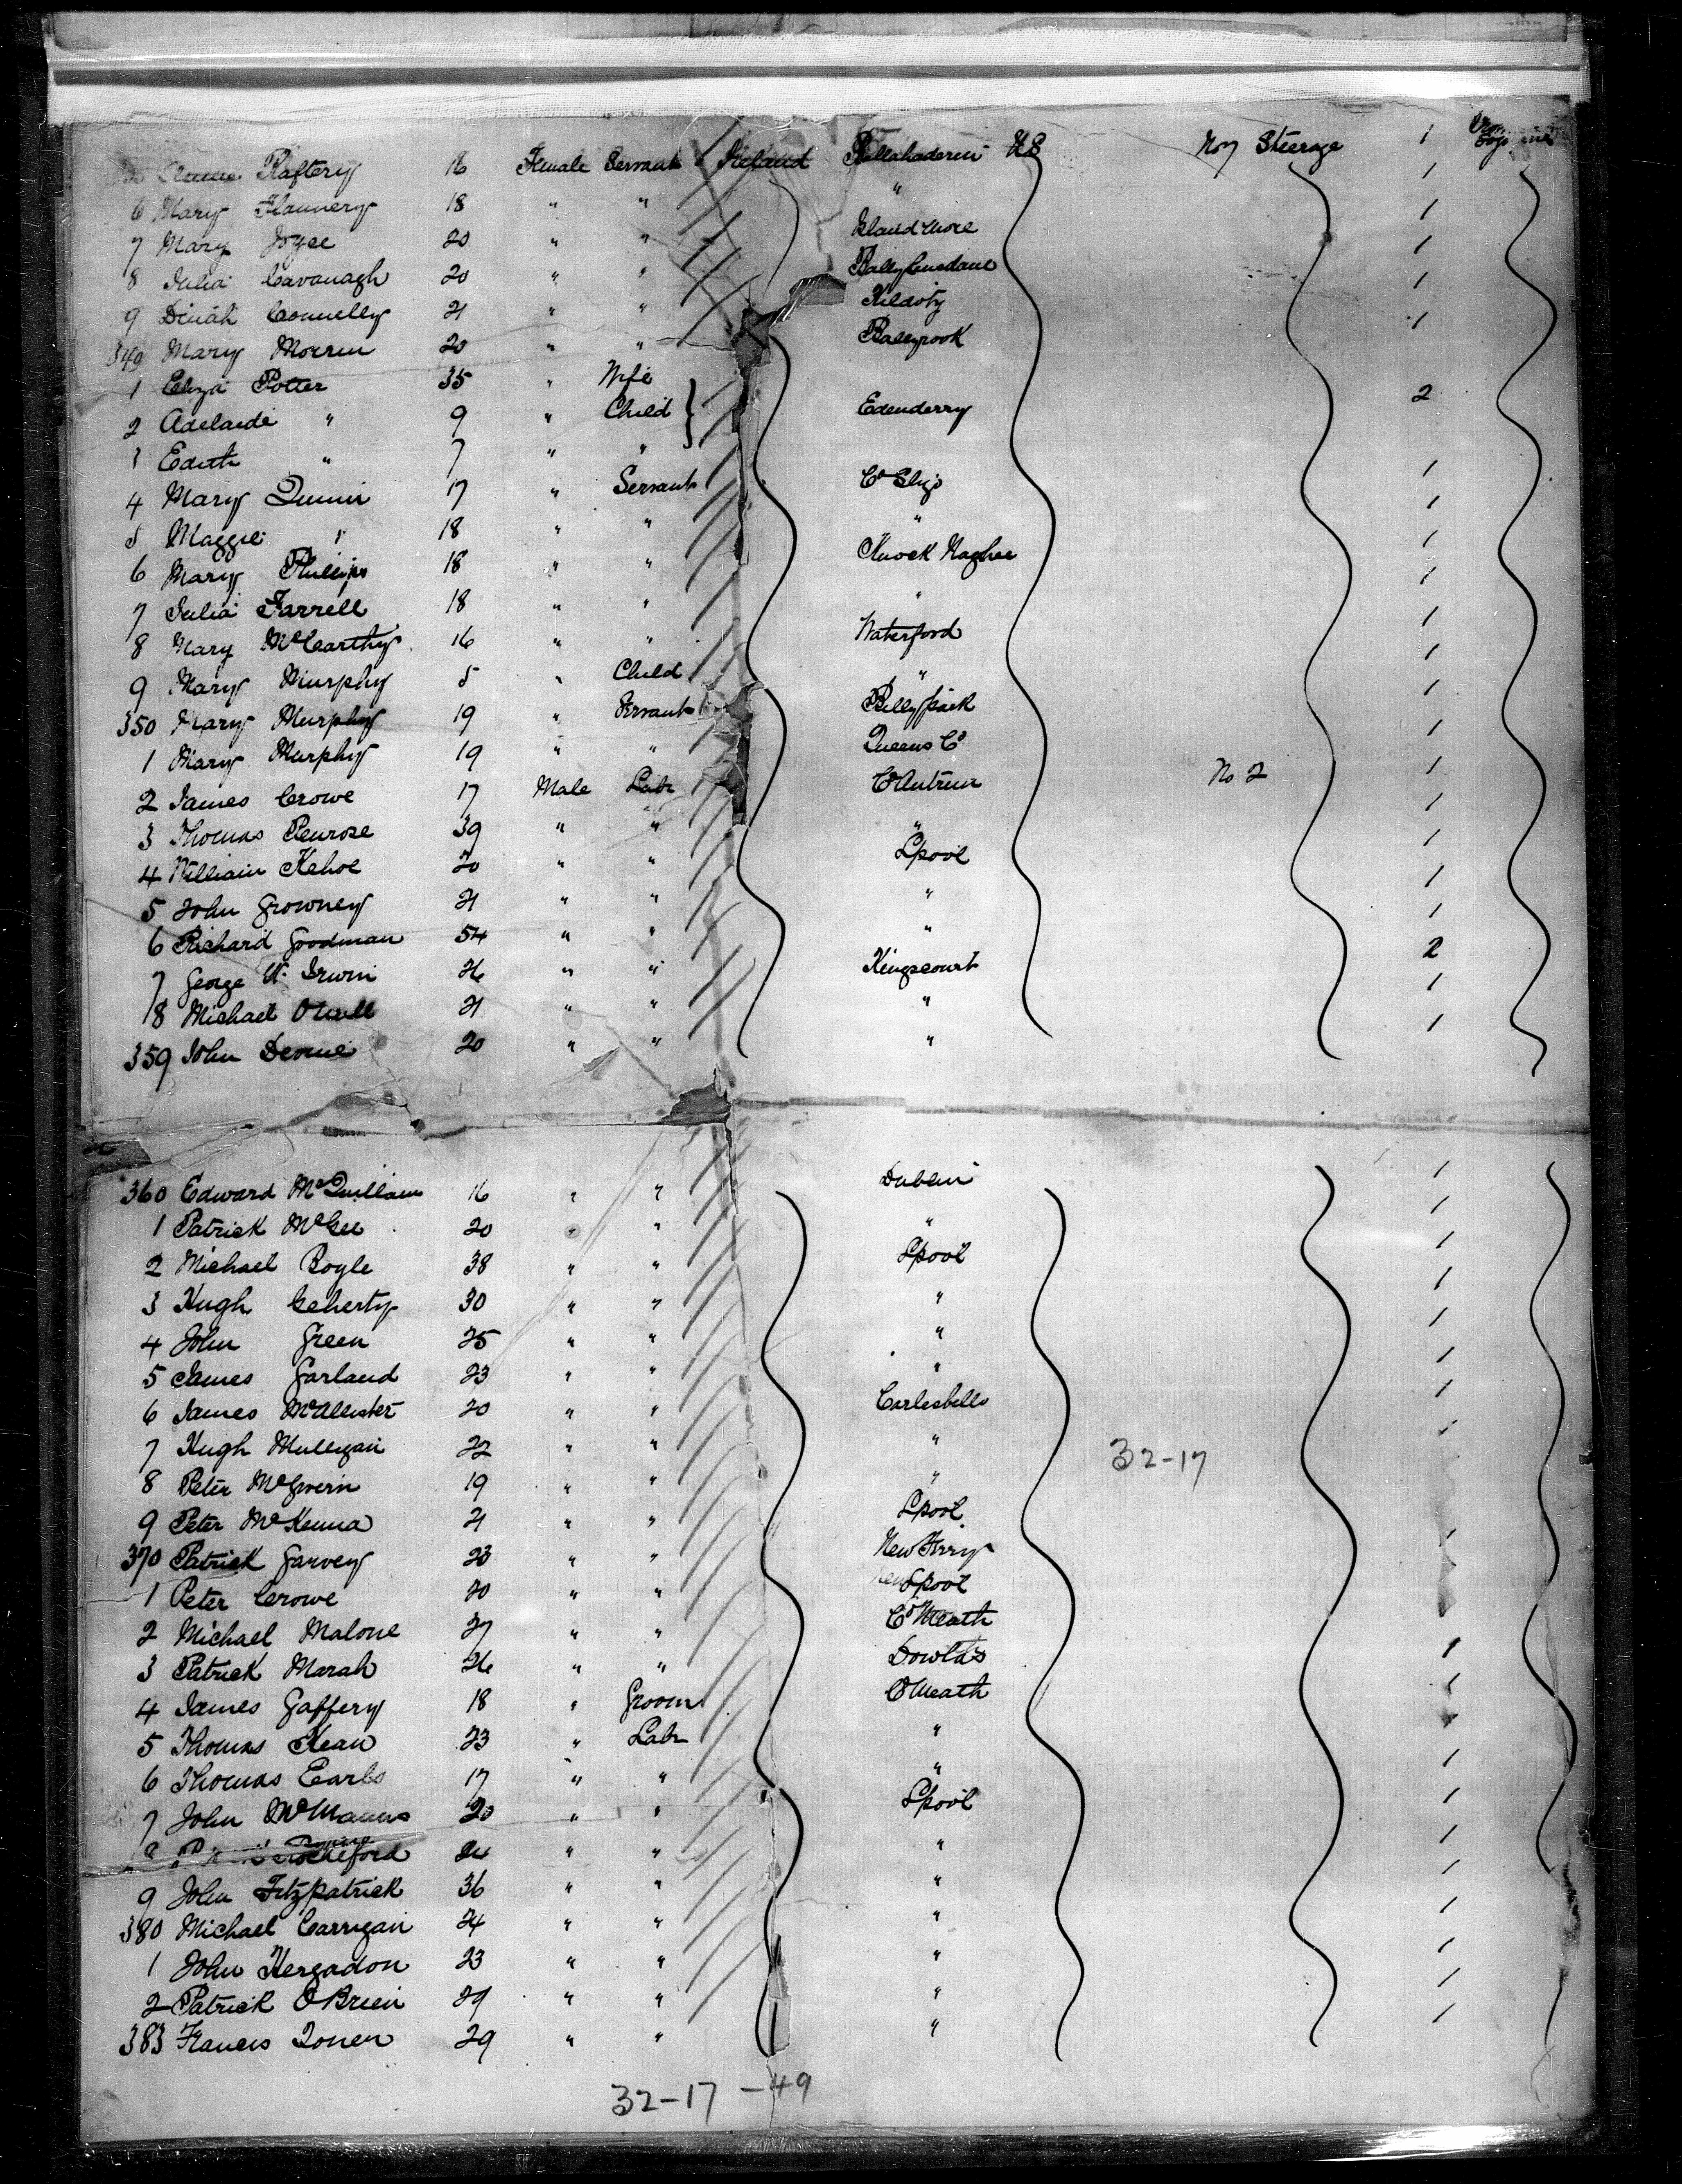 Raftery 16 Female Servant Ireland Ballahaderin US No 7 Steerage 1
6 Mary Flannery 18 " " " 1
7 Mary Joyce 20 " " Island more 1
8 Julia Cavanagh 20 " " 1
9 Dinah Connelly 21 " " Kildoty 1
340 Mary Morrin 20 " " Ballyrook 1
1 Eliza Potter 35 " Wife
2 Adelaide " 9 " Child Edenderry 2
3 Edith " 7 " "
4 Mary Quinn 17 " Servant Co Sligo 1
5 Maggie " 18 " " " 1
6 Mary Phillips 18 " " Knock Nagher 1
7 Julia Farrell 18 " " " 1
8 Mary McCarthy 16 " " Waterford 1
9 Mary Murphy 5 " Child " 1
350 Mary Murphy 19 " Servant Billypark 1
1 Mary Murphy 19 " " Queens Co 1
2 James Crowe 17 Male Labr Co Antrim No 2 1
3 Thomas Penrose 39 " " " 1
4 William Kehoe 20 " " Lpool 1
5 John Growney 21 " " " 1
6 Richard Goodman 54 " " " 1
7 George W. Irwin 26 " " Kingscourt 2
8 Michael ONeill 21 " " " 1
359 John Devine 20 " " " 1
360 Edward McQuillain 16 " " Dublin 1
1 Patrick McGee 20 " " " 1
2 Michael Boyle 38 " " Lpool 1
3 Hugh Geherty 30 " " " 1
4 John Green 25 " " " 1
5 James Garland 23 " " " 1
6 James McAllister 20 " " 1
7 Hugh Mulligan 22 " " " 32-17 1
8 Peter McGivern 19 " " "
9 Peter McKenna 21 " " Lpool
370 Patrick Garvey 23 " " New Ferry 1
1 Peter Crowe 20 " " Lpool
2 Michael Malone 27 " " Co Meath
3 Patrick Marah 26 " " Dowlas 1
4 James Gaffery 18 " Groom Co Meath 1
5 Thomas Kean 23 " Labr " 1
6 Thomas Earls 17 " " " 1
7 John McManus 20 " " Lpool 1
8 Rocheford 24 " " " 1
9 John Fitzpatrick 36 " " " 1
380 Michael Carrigan 24 " " " 1
1 John Kergadon 23 " " " 1
2 Patrick OBrien 29 " " " 1
383 Francis Jonen 29 " " " 1
32-17-49